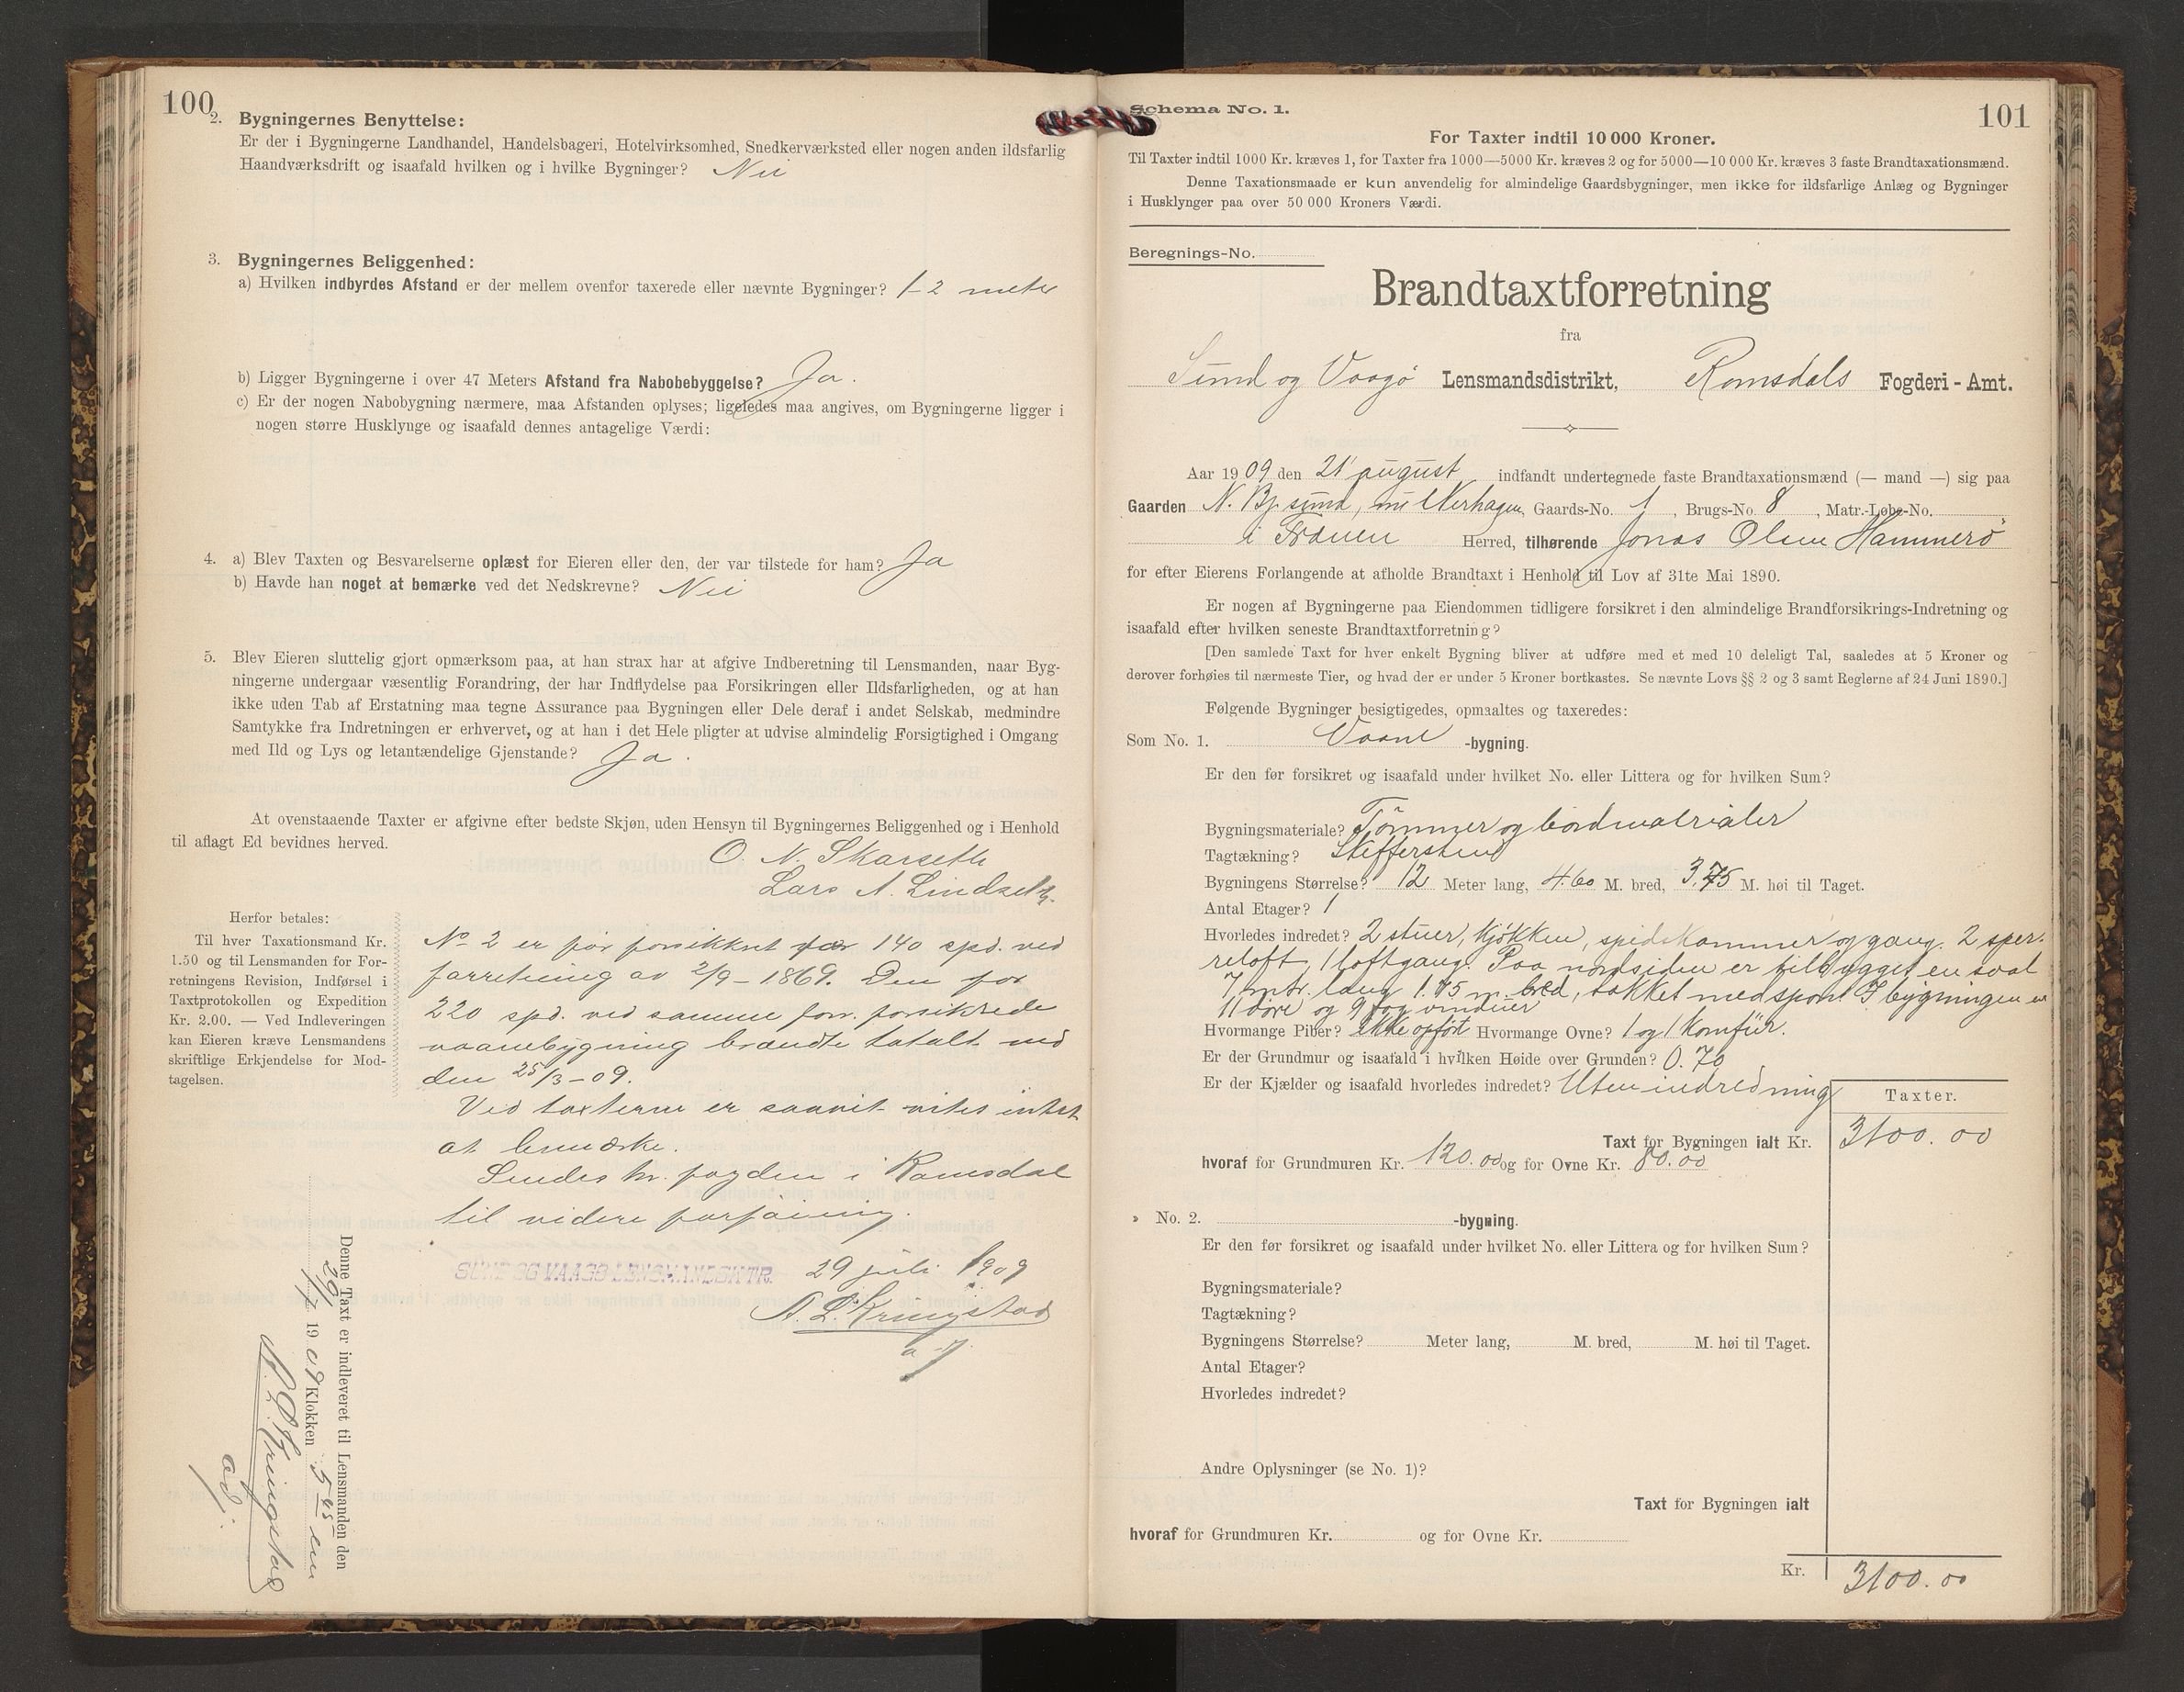 100
2. Bygningernes Benyttelse:
Er der i Bygningerne Landhandel, Handelsbageri, Hotelvirksomhed, Snedkerværksted eller nogen anden ildsfarlig
Haandværksdrift og isaafald hvilken og i hvilke Bygninger? Nei
3. Bygningernes Beliggenhed:
a) Hvilken indbyrdes Afstand er der mellem ovenfor taxerede eller nævnte Bygninger? 1-2 meter
b) Ligger Bygningerne i over 47 Meters Afstand fra Nabobebyggelse? Ja.
c) Er der nogen Nabobygning nærmere, maa Afstanden oplyses; ligeledes maa angives, om Bygningerne ligger i
nogen større Husklynge og isaafald dennes antagelige Værdi:
4. a) Blev Taxten og Besvarelserne oplæst for Eieren eller den, der var tilstede for ham? Ja
b) Havde han noget at bemærke ved det Nedskrevne? Nei
5. Blev Eieren sluttelig gjort opmærksom paa, at han strax har at afgive Indberetning til Lensmanden, naar Byg-
ningerne undergaar væsentlig Forandring, der har Indflydelse paa Forsikringen eller Ildsfarligheden, og at han
ikke uden Tab af Erstatning maa tegne Assurance paa Bygningen eller Dele deraf i andet Selskab, medmindre
Samtykke fra Indretningen er erhvervet, og at han i det Hele pligter at udvise almindelig Forsigtighed i Omgang
med Ild og Lys og letantændelige Gjenstande? Ja.
At ovenstaaende Taxter er afgivne efter bedste Skjøn, uden Hensyn til Bygningernes Beliggenhed og i Henhold
til aflagt Ed bevidnes herved.
O. N. Skarseth
Lars A. Lindseth.
Herfor betales:
Til hver Taxationsmand Kr.
1.50 og til Lensmanden for For-
retningens Revision, Indførsel i
Taxtprotokollen og Expedition
Kr. 2.00. — Ved Indleveringen
kan Eieren kræve Lensmandens
skriftlige Erkjendelse for Mod-
tagelsen.
No 2 er før forsikkret for 140 spd. ved
forretning av 2/9-1869. Den for
220 spd. ved samme forr. forsikrede
vaanebygning brændte totalt ned
den 25/3-09.
Ved taxterne er saavit vites intet
at bemærke.
Sendes hr. fogden i Romsdal
til videre forføining.
SUND OG VAAGØ LENSMANDSKTR. 29 juli 1909
A. L. Kringstad
Denne Taxt er indleveret til Lensmanden den
29/7 1909 Klokken 5 45 em
A. L. Kringstad
adj.
101
Schema No. 1.
For Taxter indtil 10 000 Kroner.
Til Taxter indtil 1000 Kr. kræves 1, for Taxter fra 1000—5000 Kr. kræves 2 og for 5000—10 000 Kr. kræves 3 faste Brandtaxationsmænd.
Denne Taxationsmaade er kun anvendelig for almindelige Gaardsbygninger, men ikke for ildsfarlige Anlæg og Bygninger
i Husklynger paa over 50 000 Kroners Værdi.
Beregnings-No.
Brandtaxtforretning
fra
Sund og Vaagø Lensmandsdistrikt, Romsdals Fogderi - Amt.
Aar 1909 den 21 august indfandt undertegnede faste Brandtaxationsmænd (— mand —) sig paa
Gaarden N. Bj.sund, Gaards-No. 1, Brugs-No. 8, Matr.-Løbe-No.
i Frænen Herred, tilhørende Jonas Olsen Hammerø
for efter Eierens Forlangende at afholde Brandtaxt i Henhold til Lov af 31te Mai 1890.
Er nogen af Bygningerne paa Eiendommen tidligere forsikret i den almindelige Brandforsikrings-Indretning og
isaafald efter hvilken seneste Brandtaxtforretning?
[Den samlede Taxt for hver enkelt Bygning bliver at udføre med et med 10 deleligt Tal, saaledes at 5 Kroner og
derover forhøies til nærmeste Tier, og hvad der er under 5 Kroner bortkastes. Se nævnte Lovs §§ 2 og 3 samt Reglerne af 24 Juni 1890.]
Følgende Bygninger besigtigedes, opmaaltes og taxeredes:
Som No. 1. Vaane -bygning.
Er den før forsikret og isaafald under hvilket No. eller Littera og for hvilken Sum?
Bygningsmateriale? Tømmer og bordmaterialer
Tagtækning? Skifferstein
Bygningens Størrelse? 12 Meter lang, 4.60 M. bred, 3.75 M. høi til Taget.
Antal Etager? 1
Hvorledes indredet? 2 stuer, kjøkken, spidskammer og gang. 2 sper-
reloft, 1 loftgang. Paa nordsiden er tilbygget en sval
7 mtr. lang 1.75 m. bred, tækket med spon. I bygningen er
11 døre og 9 fag vinduer
Hvormange Piber? ikke opført Hvormange Ovne? 1 og 1 komfür.
Er der Grundmur og isaafald i hvilken Høide over Grunden? 0.70
Er der Kjælder og isaafald hvorledes indredet? Uten indredning
Taxter.
Taxt for Bygningen ialt Kr. 3100.00
hvoraf for Grundmuren Kr. 120.00 og for Ovne Kr. 80.00
» No. 2. -bygning.
Er den før forsikret og isaafald under hvilket No. eller Littera og for hvilken Sum?
Bygningsmateriale?
Tagtækning?
Bygningens Størrelse? Meter lang, M. bred, M. høi til Taget.
Antal Etager?
Hvorledes indredet?
Andre Oplysninger (se No. 1)?
Taxt for Bygningen ialt
hvoraf for Grundmuren Kr. og for Ovne Kr.
Kr. 3100.00